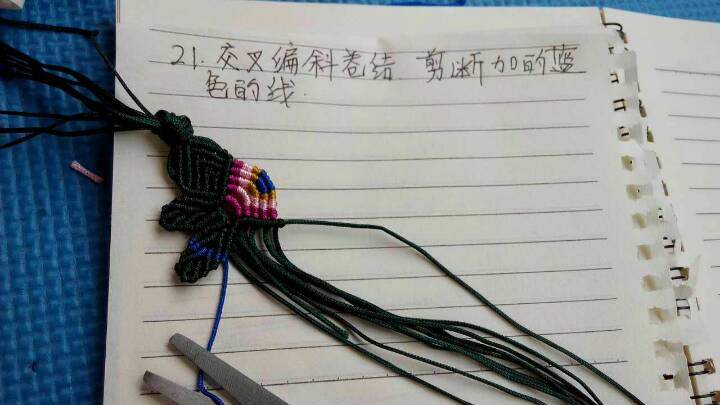 21.交叉编斜卷结 剪断加的蓝
色的线.